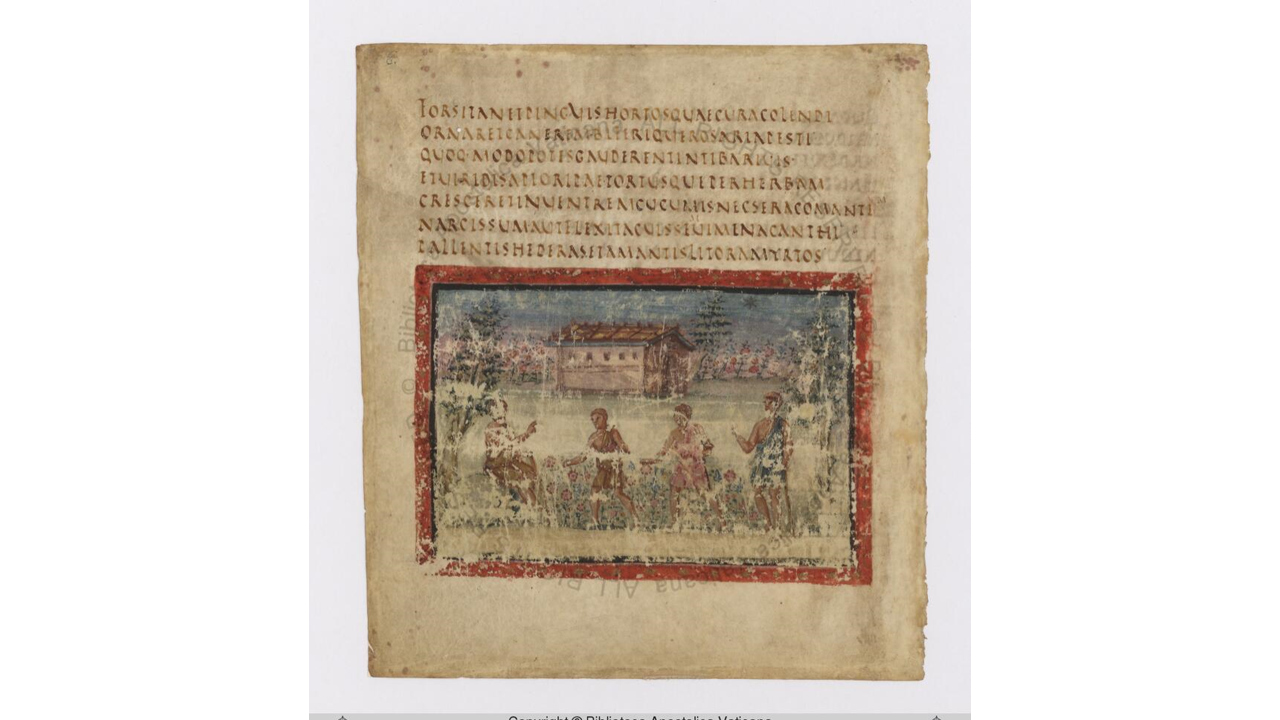 FORSITANETPINGUISHORTOSQUAECURACOLENDI
ORNARETCANEREMBIFERIQUEROSARIAPESTI
QUOQ·MODOPOTISGAUDERENTINTIBARIUIS
ETUIRIDISAPIORIPAETORTUSQUEPERHERBAM
CRESCERETINUENTREMCUCUMISNECSERACOMANTEM
NARCISSUMAUTFLEXITACUISSEMUIMENACANTHI
PALLENTISHEDERASETAMANTISLITORAMYRTOS
Copyright © Biblioteca Apostolica Vaticana